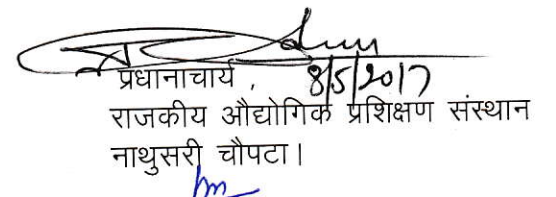 प्रधानाचार्य , 8/5/2017
राजकीय औद्योगिक प्रशिक्षण संस्थान
नाथुसरी चौपटा।